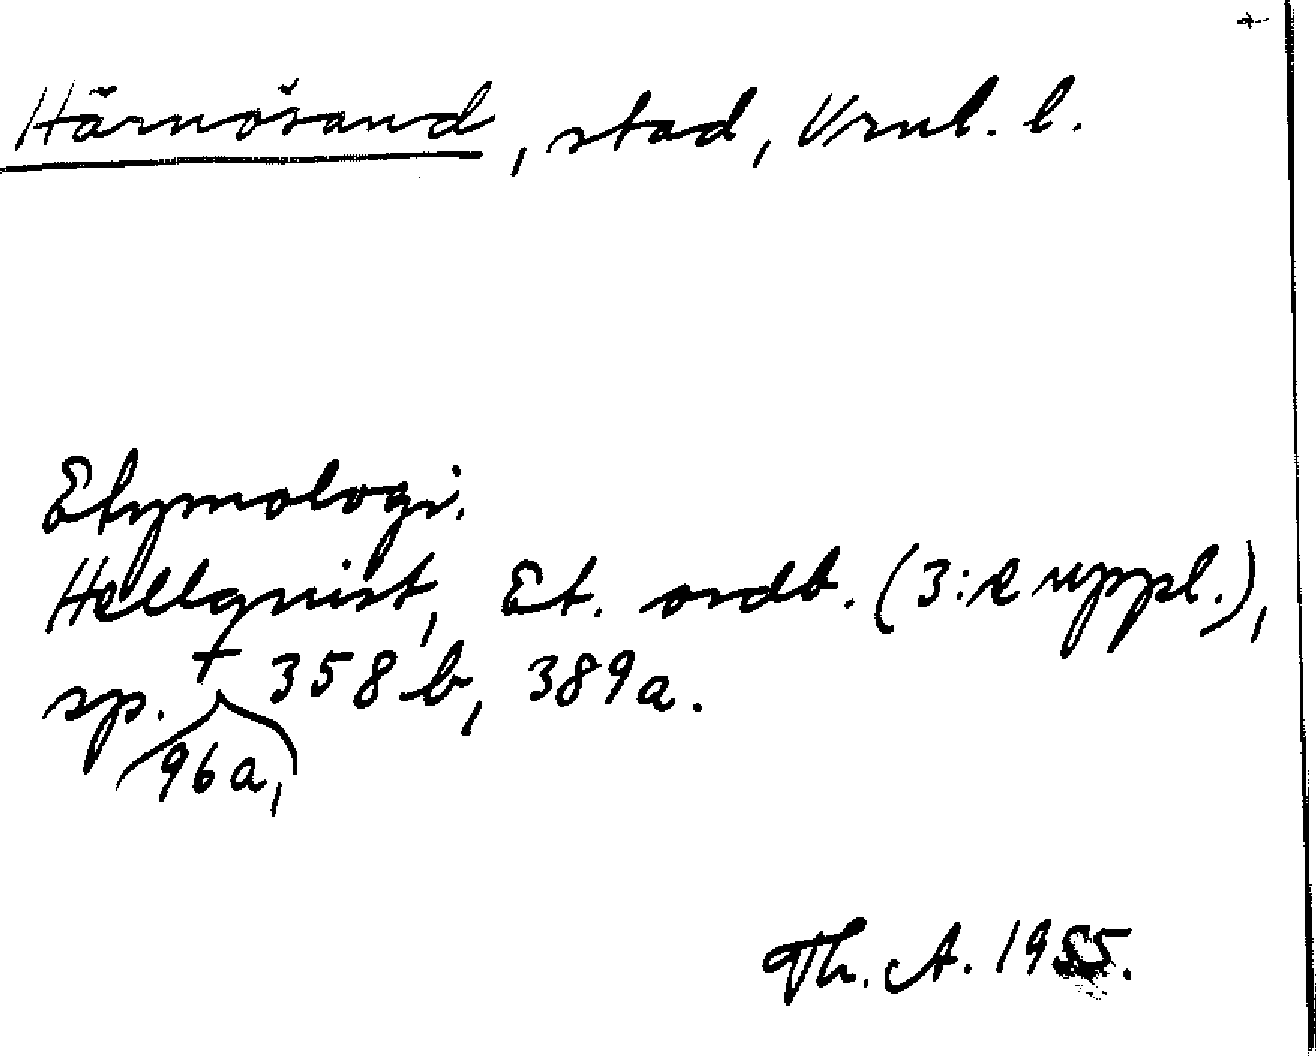 +
Härnösand, stad, Vrnl. l.
Etymologi.
Hellquist, Et. ordb. (3:e uppl.),
sp. + 358 b, 389a.
96a,
Th. A. 1955.